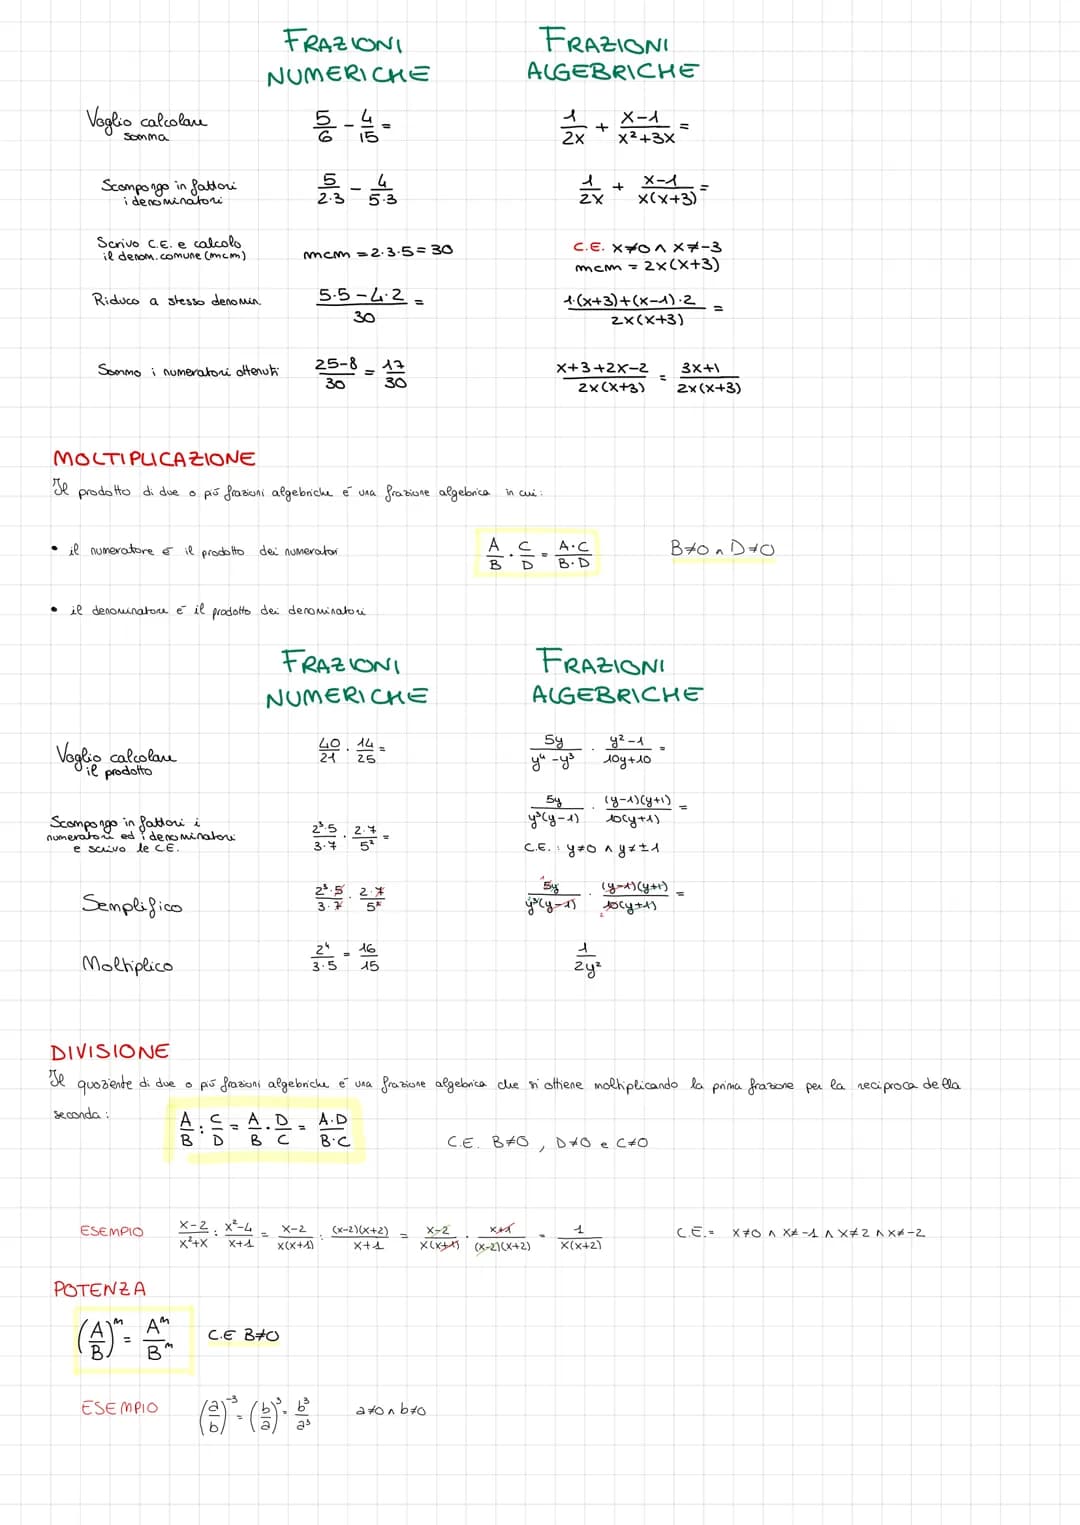 FRAZIONI NUMERICHE
FRAZIONI ALGEBRICHE
Voglio calcolare somma
5/6 - 4/15 =
1/2x + x-1/x²+3x =
Scompongo in fattori i denominatori
5/2·3 - 4/5·3
1/2x + x-1/x(x+3) =
Scrivo C.E. e calcolo il denom. comune (mcm)
mcm = 2·3·5 = 30
C.E. x≠0 ∧ x≠-3
mcm = 2x(x+3)
Riduco a stesso denomin.
5·5-4·2/30 =
1·(x+3)+(x-1)·2/2x(x+3) =
Sommo i numeratori ottenuti
25-8/30 = 17/30
x+3+2x-2/2x(x+3) = 3x+1/2x(x+3)
MOLTIPLICAZIONE
Il prodotto di due o più frazioni algebriche è una frazione algebrica in cui:
• il numeratore è il prodotto dei numeratori
A/B · C/D = A·C/B·D
B≠0 ∧ D≠0
• il denominatore è il prodotto dei denominatori
FRAZIONI NUMERICHE
FRAZIONI ALGEBRICHE
Voglio calcolare il prodotto
40/21 · 14/25 =
5y/y⁴-y³ · y²-1/10y+10 =
Scompongo in fattori i numeratori ed i denominatori e scrivo le C.E.
2³·5/3·7 · 2·7/5² =
5y/y³(y-1) · (y-1)(y+1)/10(y+1) =
C.E.: y≠0 ∧ y≠±1
Semplifico
2³·5/3·7 · 2·7/5²
5y/y³(y-1) · (y-1)(y+1)/10(y+1) =
Moltiplico
2⁴/3·5 = 16/15
1/2y²
DIVISIONE
Il quoziente di due o più frazioni algebriche è una frazione algebrica che si ottiene moltiplicando la prima frazione per la reciproca della
seconda:
A/B : C/D = A/B · D/C = A·D/B·C
C.E. B≠0, D≠0 e C≠0
ESEMPIO x-2/x²+x : x²-4/x+1 = x-2/x(x+1) : (x-2)(x+2)/x+1 = x-2/x(x+1) · x+1/(x-2)(x+2) = 1/x(x+2) C.E.= x≠0 ∧ x≠-1 ∧ x≠2 ∧ x≠-2
POTENZA
(A/B)ᵐ = Aᵐ/Bᵐ C.E B≠0
ESEMPIO (a/b)⁻³ = (b/a)³ = b³/a³ a≠0 ∧ b≠0